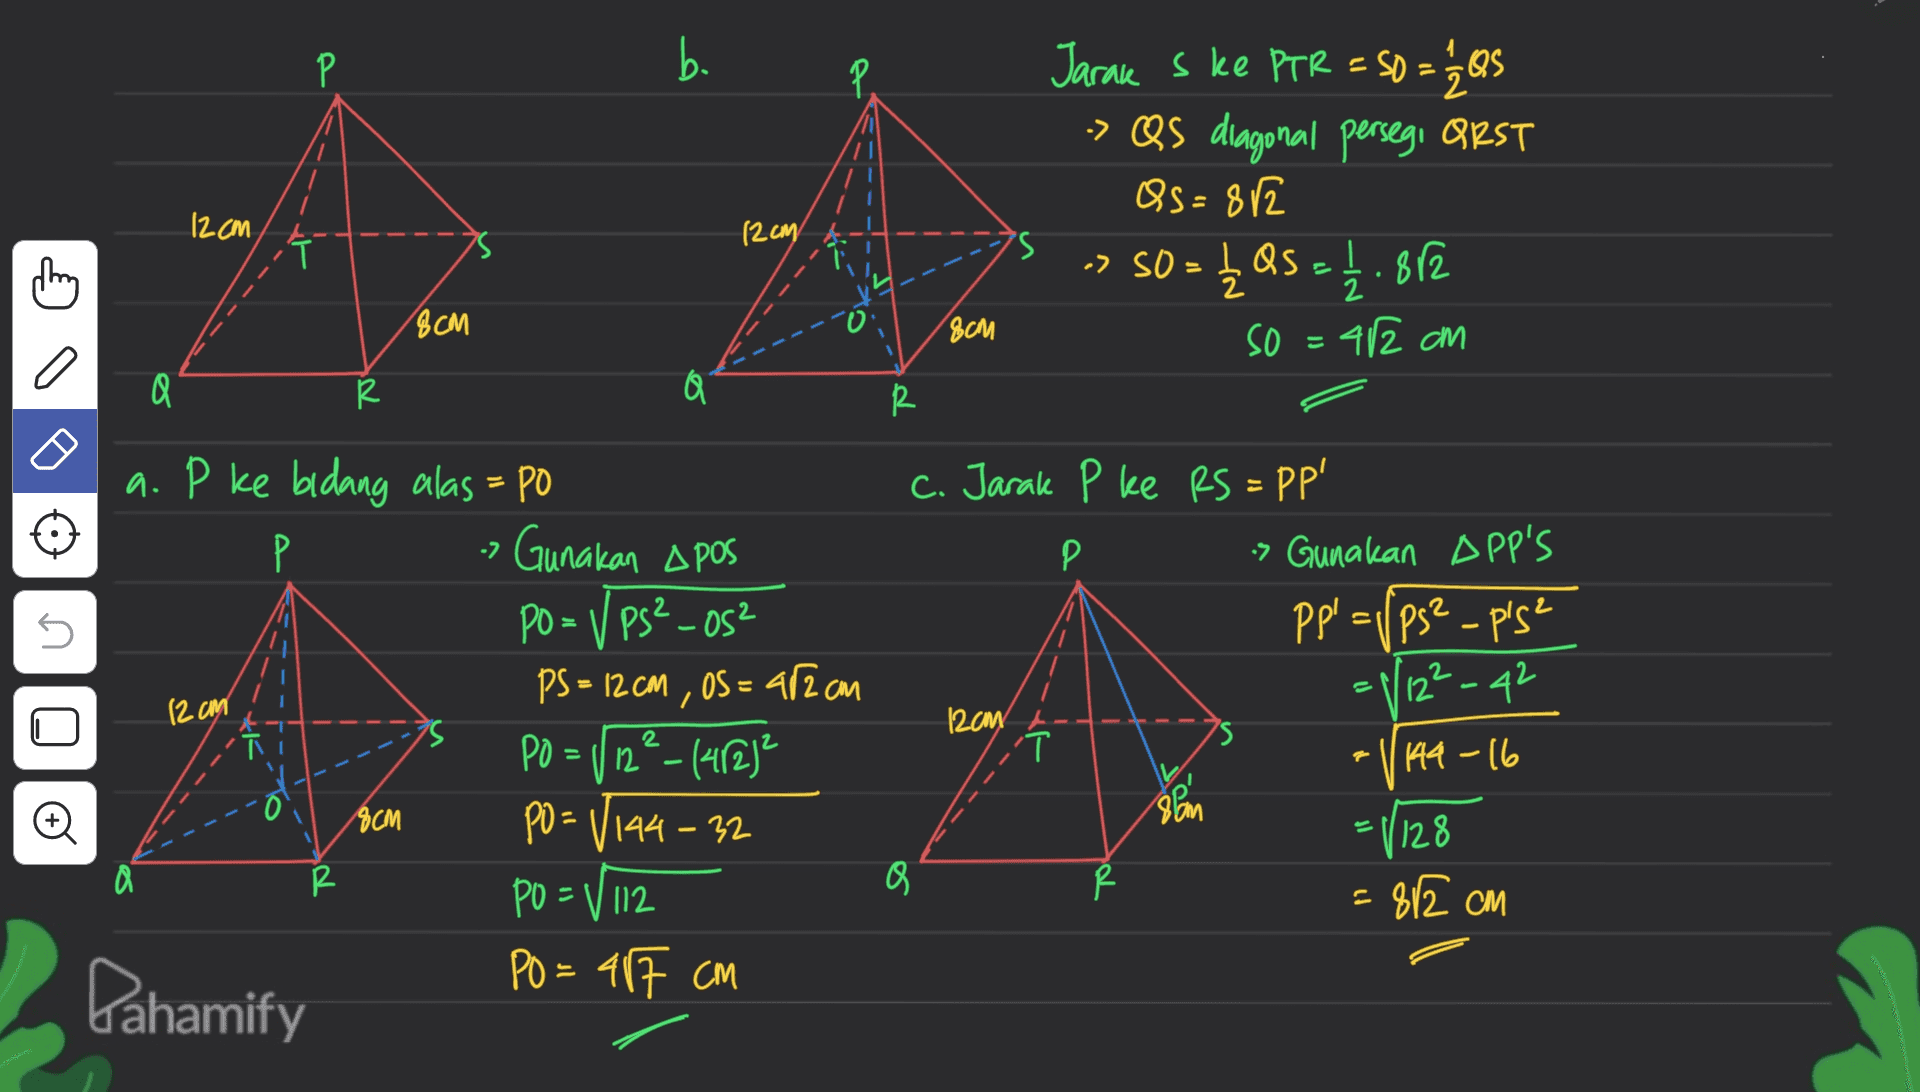 P
12 cm
T
S
8 cm
Q
R
b.
P
12 cm
T
S
O
8 cm
Q
R
Jarak S ke PTR = SO = 1/2 QS
-> QS diagonal persegi QRST
QS = 8√2
-> SO = 1/2 QS = 1/2 . 8√2
SO = 4√2 cm
a. P ke bidang alas = PO
P
12 cm
T
S
O
8 cm
Q
R
-> Gunakan △ POS
PO = √PS² - OS²
PS = 12 cm , OS = 4√2 cm
PO = √12² - (4√2)²
PO = √144 - 32
PO = √112
PO = 4√7 cm
c. Jarak P ke RS = PP'
P
12 cm
T
S
P'
8 cm
Q
R
-> Gunakan △ PP'S
PP' = √PS² - P'S²
= √12² - 4²
= √144 - 16
= √128
= 8√2 cm
Pahamify